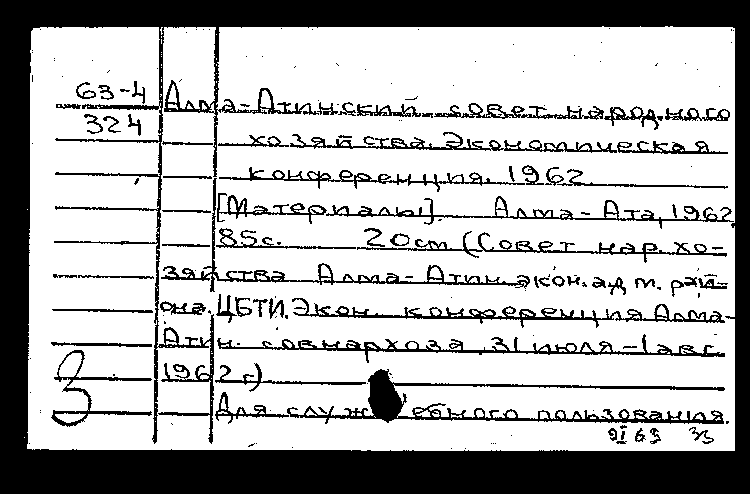 63-4 Алма-Атинский совет народного
324 хозяйства. Экономическая
конференция. 1962.
[Материалы]. Алма-Ата, 1962.
85с. 20см (Совет нар. хо-
зяйства Алма-Атин. экон. адм. рай-
она. ЦБТИ. Экон. конференция Алма-
Атин. совнархоза, 31 июля - 1 авг.
1962 г.)
З Для служебного пользования.